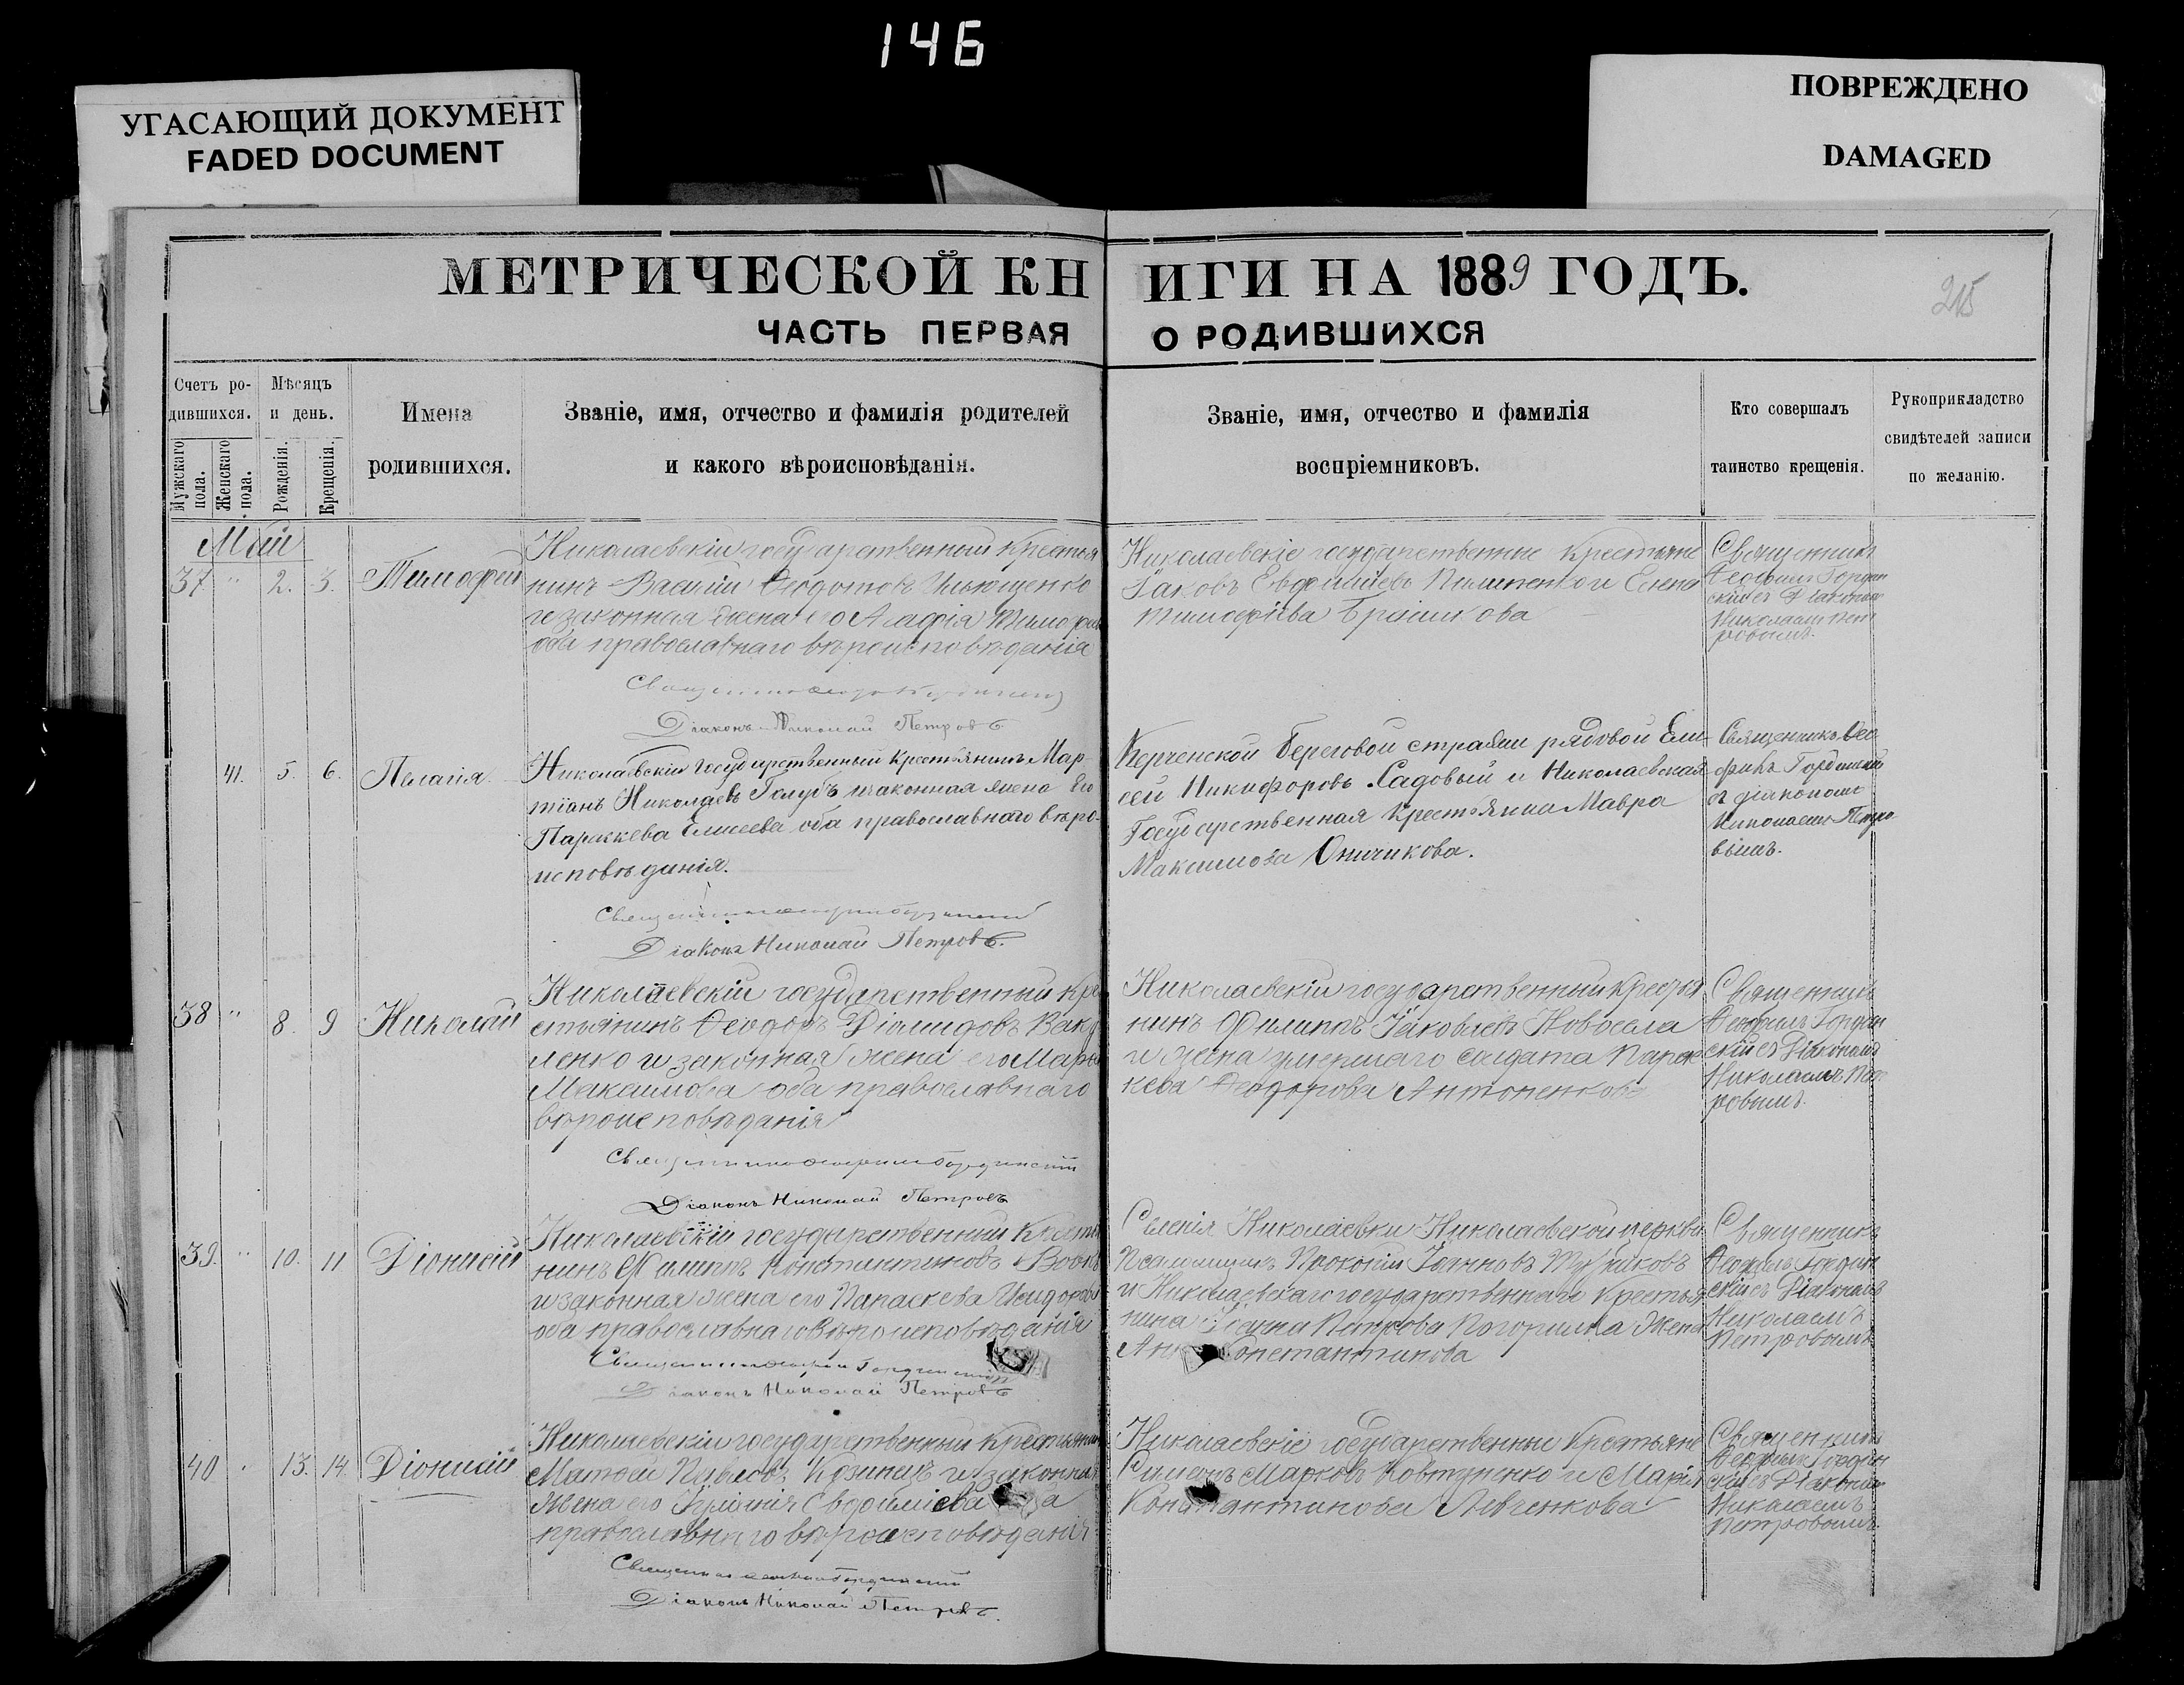 146
УГАСАЮЩИЙ ДОКУМЕНТ
FADED DOCUMENT
ПОВРЕЖДЕНО
DAMAGED
МЕТРИЧЕСКОЙ КНИГИ НА 1889 ГОДЪ.
215
ЧАСТЬ ПЕРВАЯ О РОДИВШИХСЯ
Счетъ ро-
дившихся.
Мужскаго пола.
Женскаго пола.
Мѣсяцъ
и день.
Рожденія.
Крещенія.
Имена
родившихся.
Званіе, имя, отчество и фамилія родителей
и какого вѣроисповѣданія.
Званіе, имя, отчество и фамилія
воспріемниковъ.
Кто совершалъ
таинство крещенія.
Рукоприкладство
свидѣтелей записи
по желанію.
Май
37 " 2. 3. Тимофей
Николаевскій государственный крестья
нинъ Василій Ѳеодотовъ Ильющенко
и законная жена его Агафія
оба православнаго вѣроисповѣданія
Діаконъ Николай Петровъ
Николаевскіе государственные крестьяне
Іаковъ Евфиміевъ Пилипенко и Елена
Тимофѣева
Священникъ
Ѳеофилъ Гордин
скій съ Діакономъ
Николаемъ Пет
ровымъ.
41. 5. 6. Пелагія.
Николаевскій государственный крестьянинъ Мар
тіанъ Николаевъ Голубъ и законная жена его
Параскева Елисеева оба православнаго вѣро-
исповѣданія.
Діаконъ Николай Петровъ.
Керченской береговой стражи рядовой Ели
сей Никифоровъ Садовый и Николаевская
Государственная крестьянка Мавра
Максимова Оничкова.
Священникъ Ѳео
филъ Гординскій
съ діакономъ
Николаемъ Петро
вымъ.
38 " 8. 9 Николай
Николаевскій государственный кре
стьянинъ Ѳеодоръ Діомидовъ
ленко и законная жена его Марѳа
Максимова оба православнаго
вѣроисповѣданія
Діаконъ Николай Петровъ
Николаевскій государственный крестья
нинъ Филиппъ Іаковлевъ Новосела
и жена умершаго солдата Парас
кева Ѳеодорова Антоненкова
Священникъ
Ѳеофилъ Гордин
скій съ Діакономъ
Николаемъ Пет
ровымъ.
39. " 10. 11 Діонисій
Николаевскій государственный крестья
нинъ Филиппъ Константиновъ
и законная жена его Параскева Исидорова
оба православнаго вѣроисповѣданія
Діаконъ Николай Петровъ
Селенія Николаевки Николаевской церкви
Псаломщикъ Прокопій Іоанновъ
и Николаевскаго государственнаго крестья
нина Петрова Погорилка жена
Константинова
Священникъ
Ѳеофилъ Гордин
скій съ Діакономъ
Николаемъ
Петровымъ
40 . 13. 14. Діонисій
Николаевскій государственный крестьянин
Матѳей Павловъ Козинецъ и законная
жена его Евфиміева
православнаго вѣроисповѣданія
Діаконъ Николай Петровъ.
Николаевскіе государственные крестьяне
Симеонъ Марковъ Ковтуненко и Марія
Константинова Левченкова
Священникъ
Ѳеофилъ Гордин
скій съ Діакономъ
Николаемъ
Петровымъ.